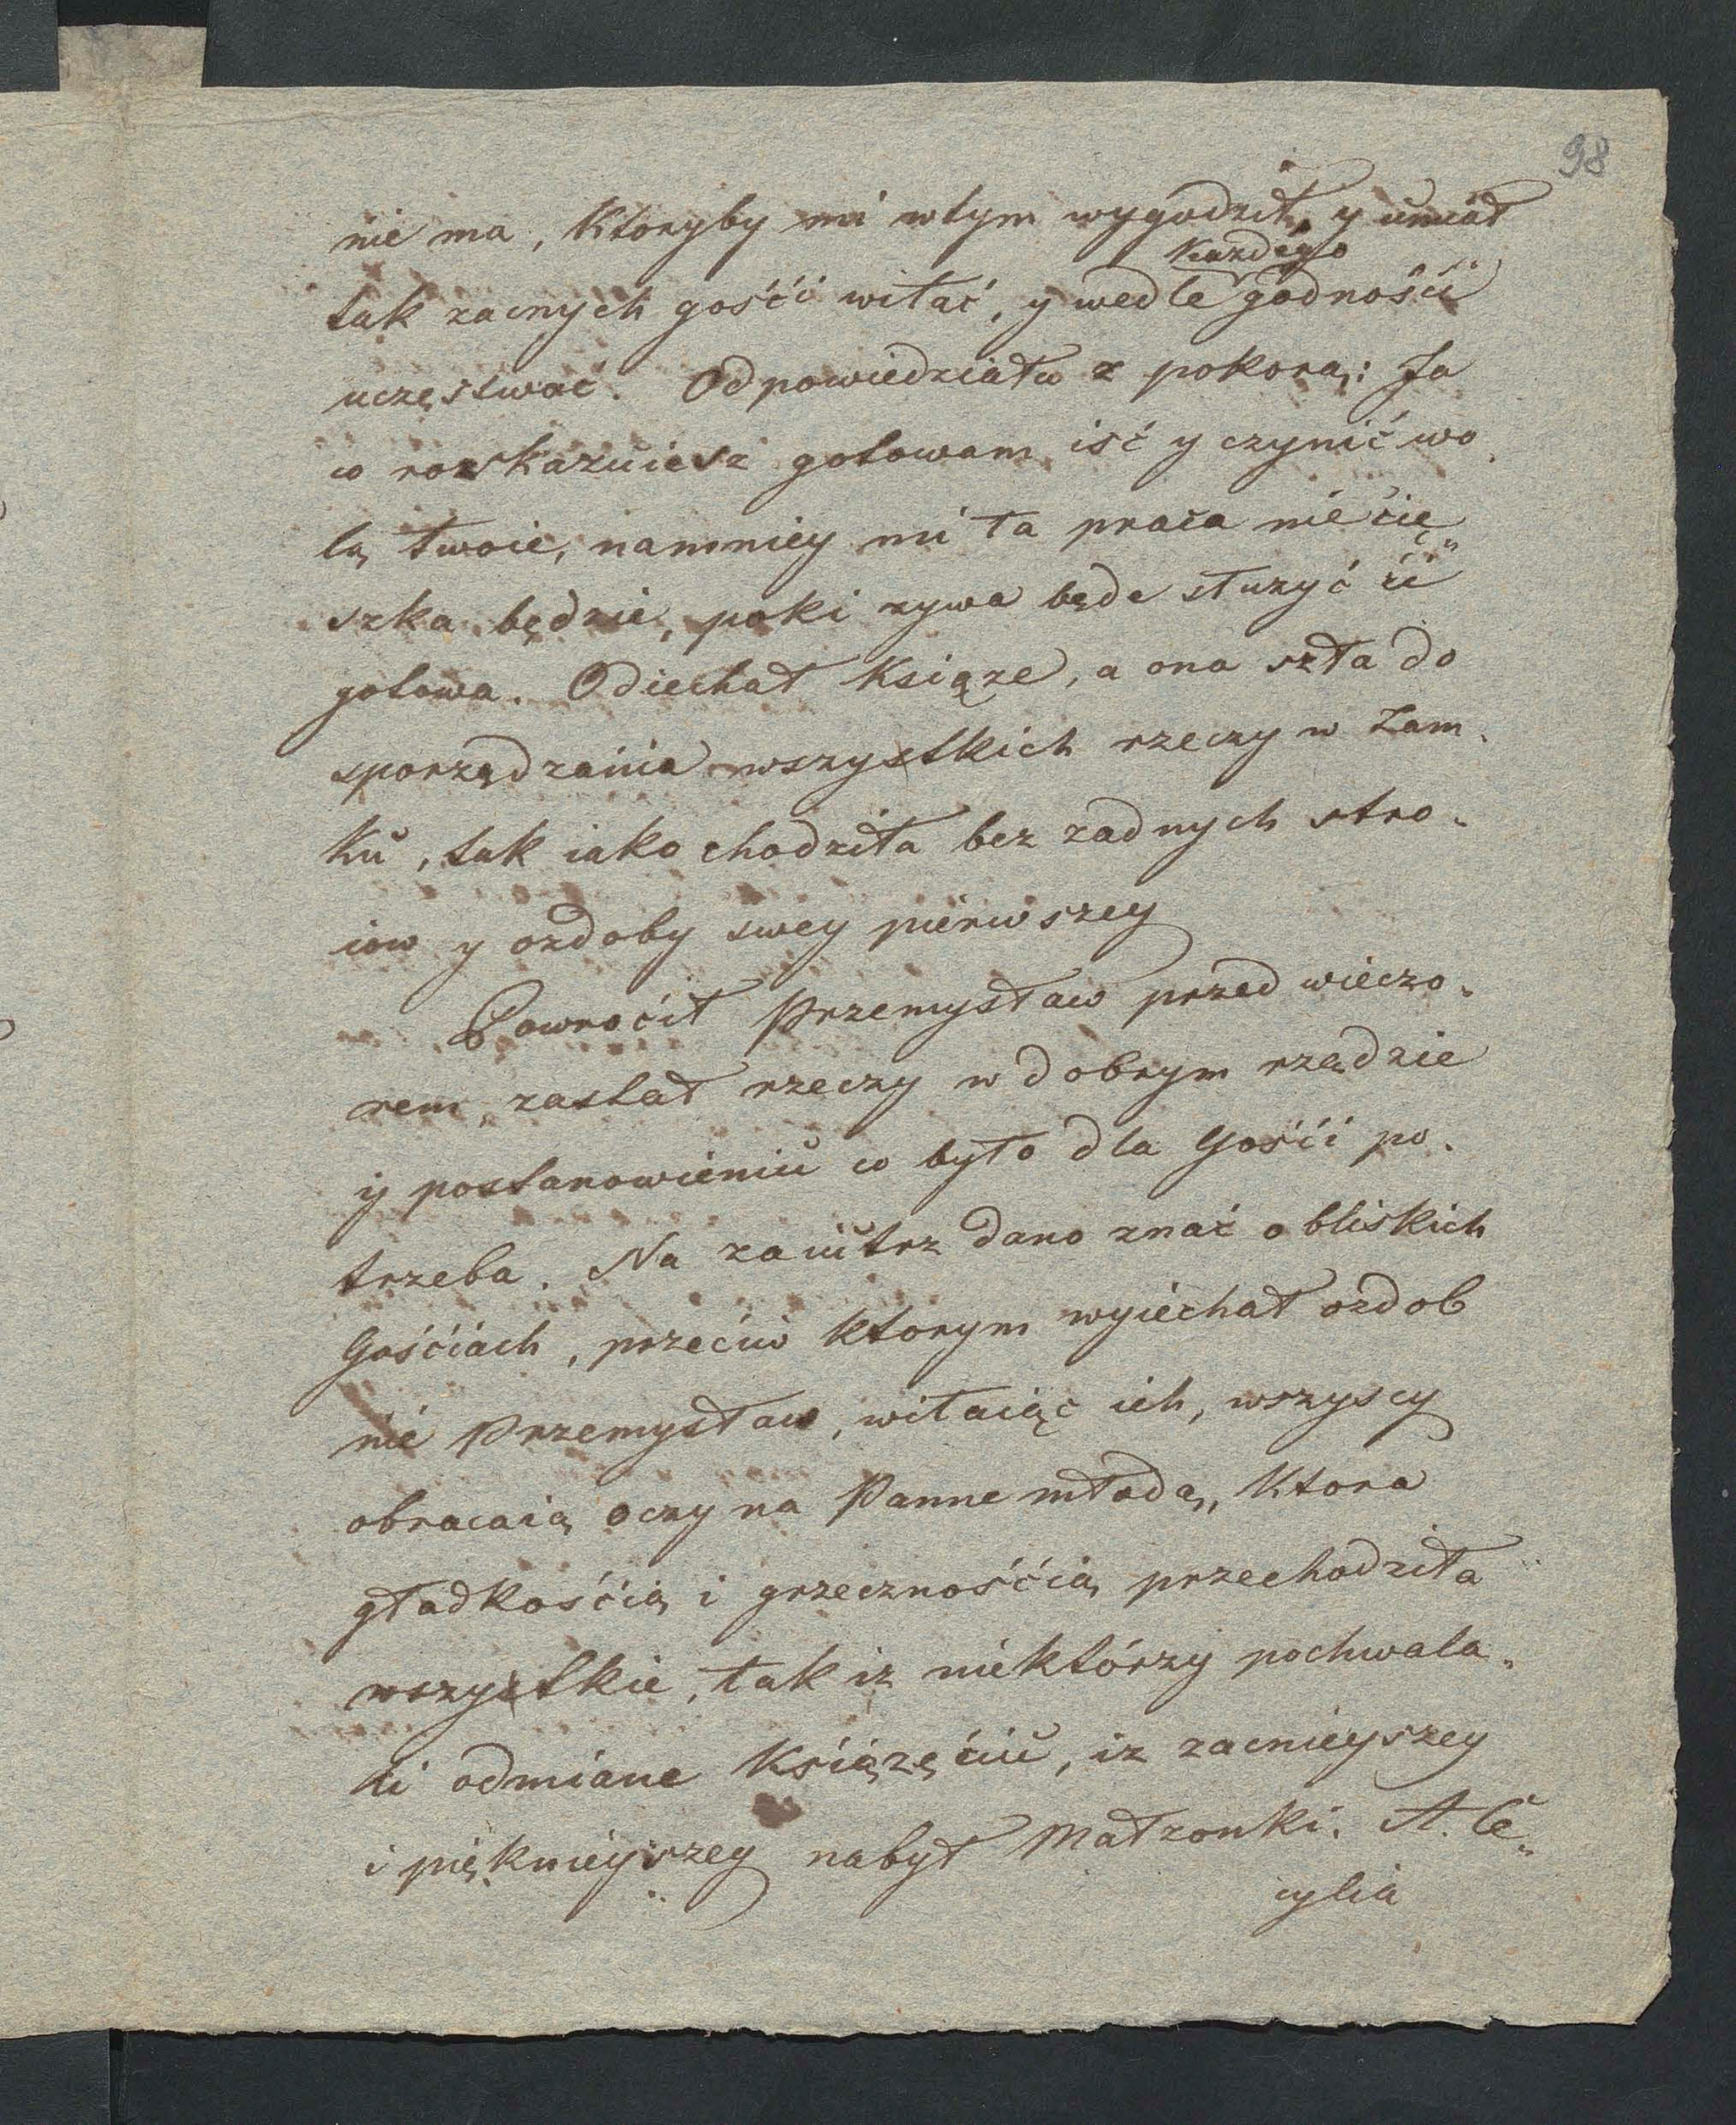 98
nie ma, Ktoryby mi wtym wygodził, y umiał
Każdego
tak zacnych gośći witać, y wedle godnośći
uczęstwać. Odpowiedziała z pokorą: Ja
co rozkazuiesz gotowam iść y czynić wo„
lą twoie, namniey mi ta praca nie cię„
szka będzie, poki zywa będe służyć ći
gotowa. Odiechał Książe, a ona szła do
sporządzania wszystkich rzeczy w Zam„
ku, tak iako chodziła bez zadnych stro„
iow y ozdoby swey pierwszey
Powroćił Przemysław przed wieczo„
rem, zastał rzeczy w dobrym rządzie
y postanowieniu co było dla Gośći po„
trzeba. Na zaiutrz dano znać o bliskich
Gośćiach, przećiw ktorym wyiechał ozdob
nie Przemysław, witaiąc ich, wszyscy
obracaią oczy na Panne młodą, Ktora
gładkośćią i grzecznośćią przechodziła
wszystkie, tak iz niektórzy pochwala„
li odmiane Książęćiu, iz zacnieyszey
i pięknieyszey nabył Małzonki. A. Ce„
cylia